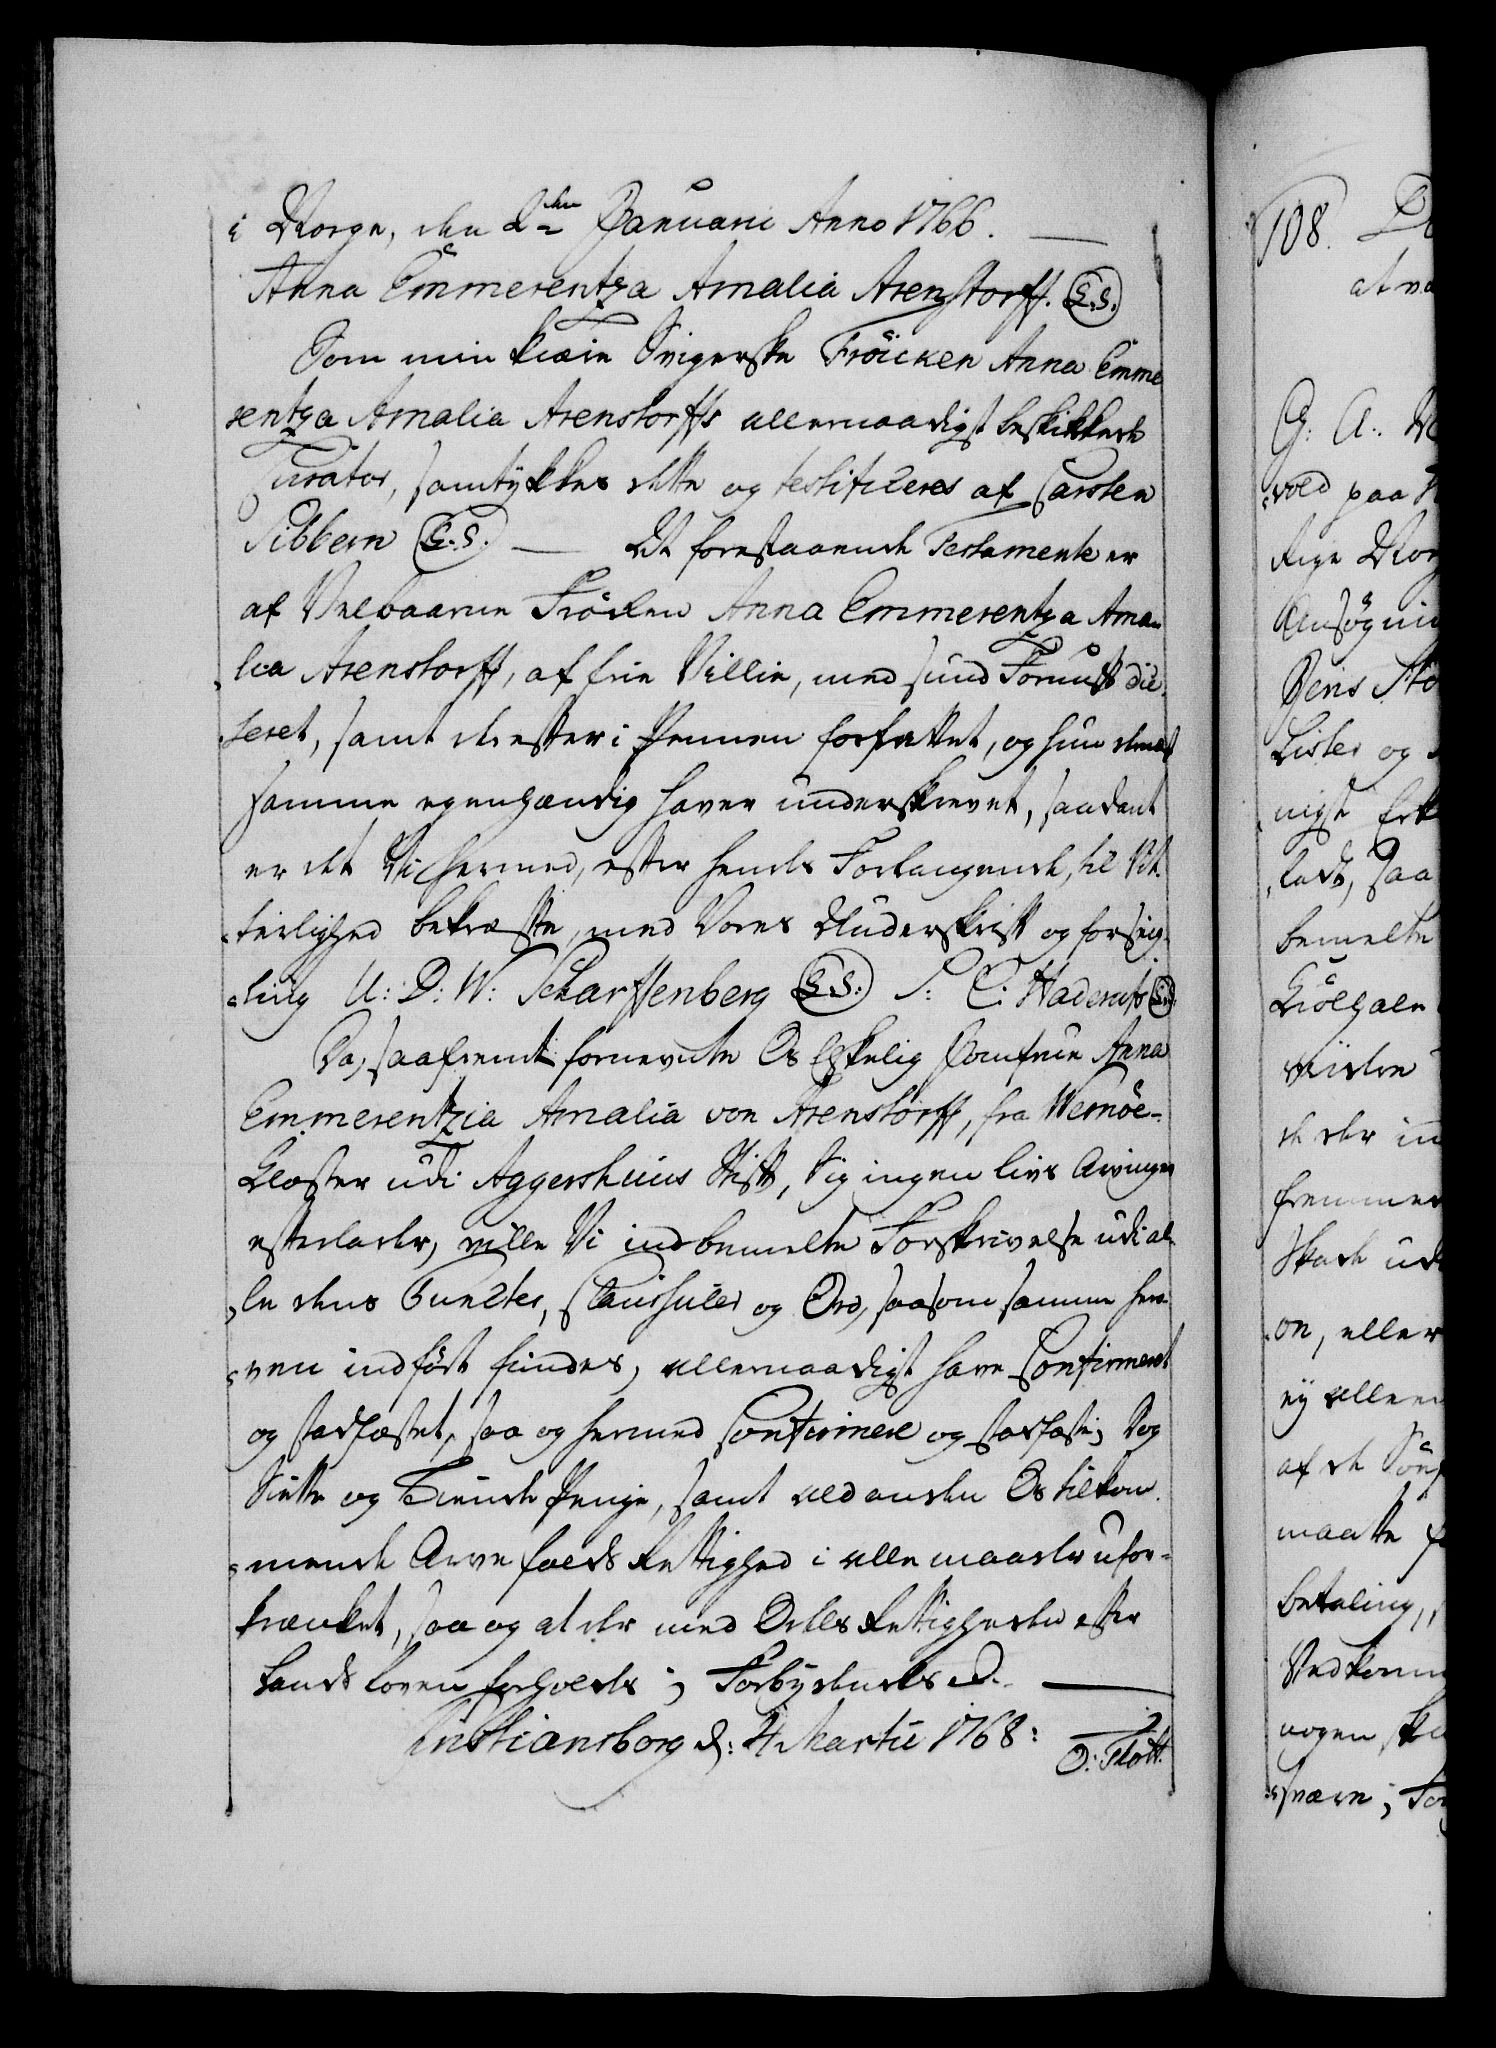 i Norge, den 2den Januarii Anno 1766.
Anna Emmerentza Amalia Arenstorff. (L.S.)
Som min kiære Svigerske Fröicken Anna Emme
rentza Amalia Arenstorffs allernaadigst beskikkede
Curator, samtykkes dette og testificeres af Carsten
Sibbern (L.S.) At forestaaende Testamente er
af Velbaarne Fröken Anna Emmerentza Ama-
lia Arenstorff, af frie Villie, med sund Fornuft dic-
teret, samt derefter i Pennen forfattet, og hun dernest
samme egenhændig haver underskrevet, saadant
er det Vi hermed, efter hendes Forlangende, til Vit-
terlighed bekræfte, med Vores Underskrift og forseig-
ling U: D: W: Scharffenberg (L.S.) S: C: Haderup (L.S.)
Da, saafremt fornevnte Os Elskelig Jomfrue Anna
Emmerentzia Amalia von Arenstorff, fra Wemöe-
Closter udi Aggershuus Stift, Sig ingen livs Arvinger
efterlader, ville Vi indbemelte Forskrivelse udi al-
le dens Puncter, Clausuler og Ord, saasom samme her-
oven indfört findes, allernaadigst have Confirmeret
og stadfæstet, saa og hermed Confirmere og stadfæste; Dog
Siette og Tiende Penge, samt al anden Os tilkom-
mende Arve faldsRettighed i alle maader ufor-
krænket, saa og at der med Odels Rettigheden efter
Lands Loven forholdes; Forbydendes p.
Christiansborg d: 4 Martii 1768:
O: Thott.
108.
at va
G: A:
voed paa
Rige Nor
Ansögnin
Jens
Lister og
nigst Erk
ladt, saa
bemelte
de der
fremmer
Skade ud
on, eller
ey allee
af de
maatte
betaling,
Vedkomm
nogen
svære; For